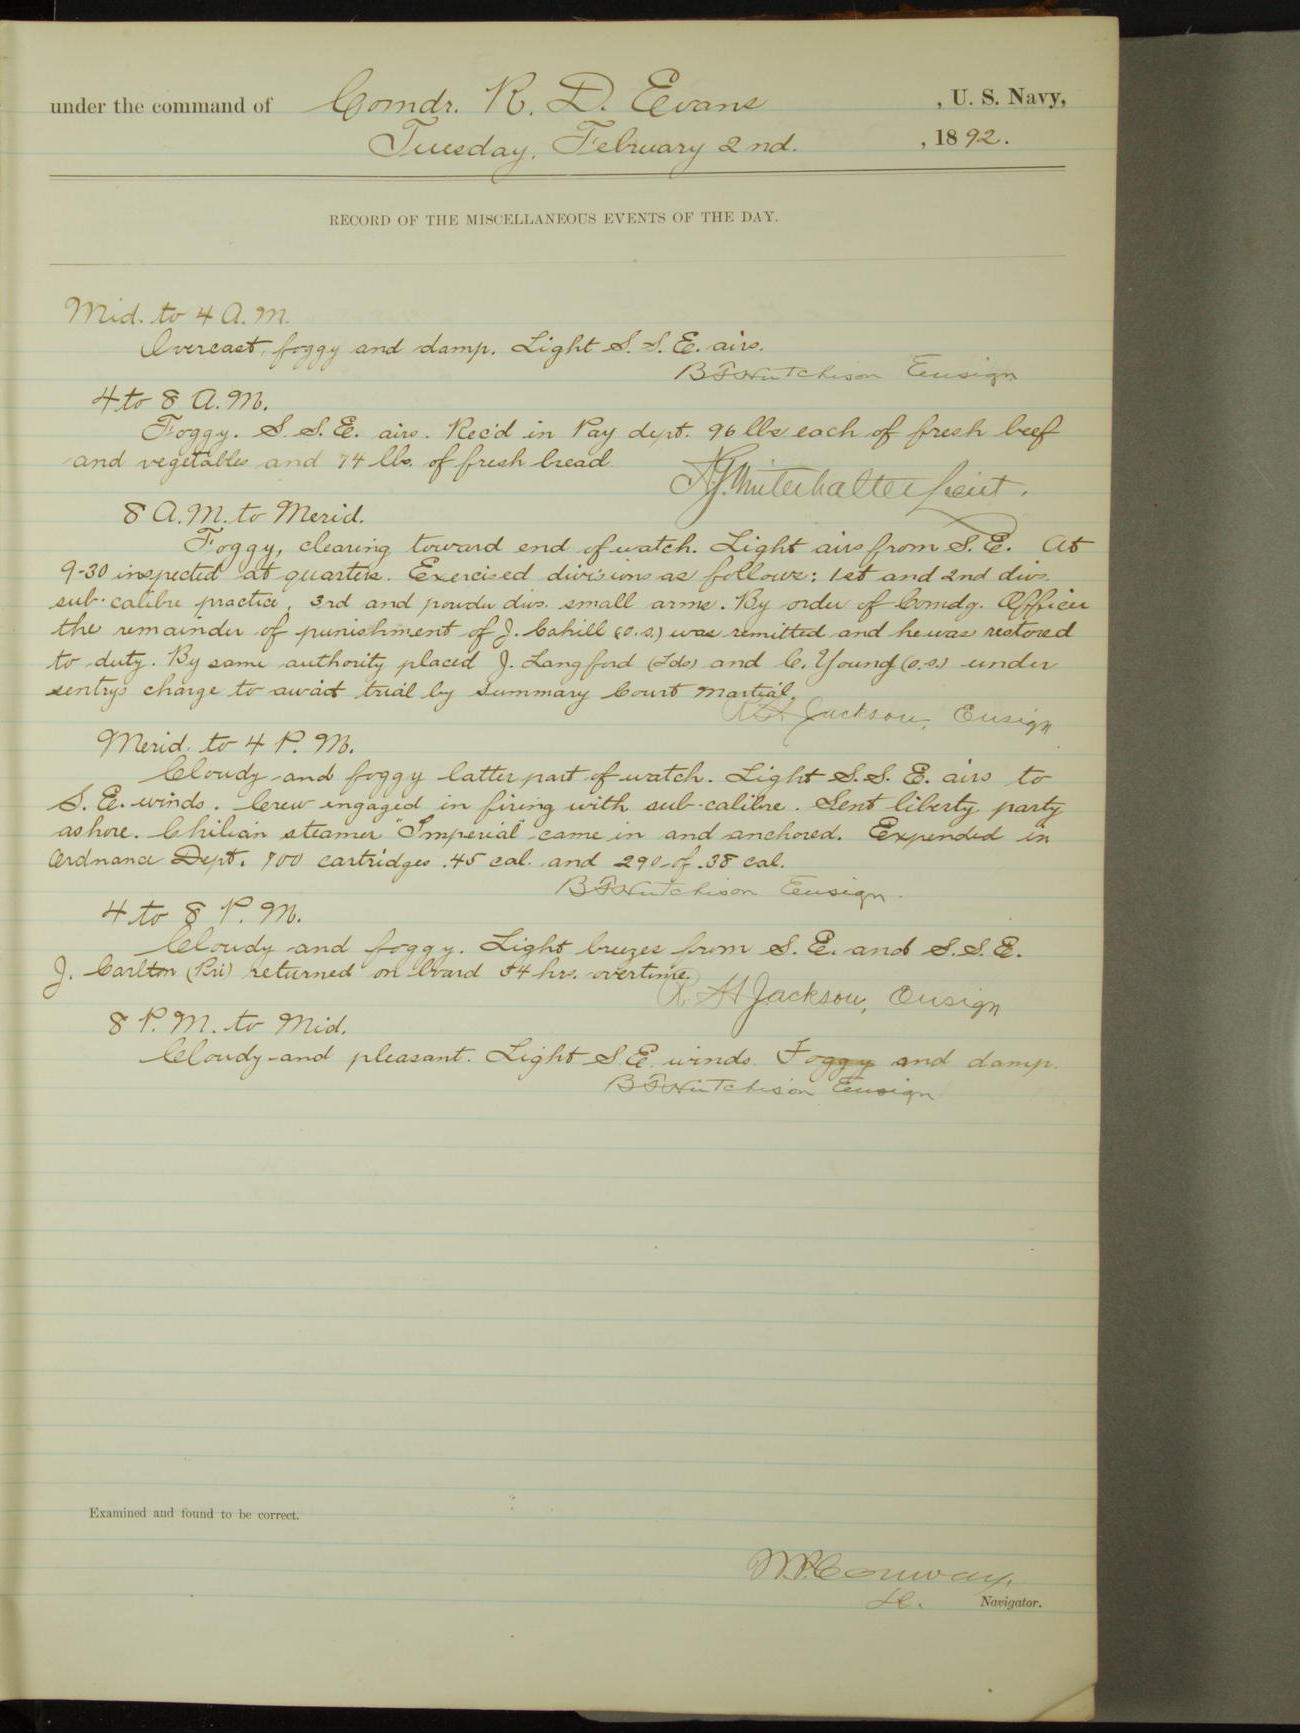 under the command of Comdr. R. D. Evans , U. S. Navy,
Tuesday, February 2nd. , 1892.
RECORD OF THE MISCELLANEOUS EVENTS OF THE DAY.
Mid. to 4 A.M.
Overcast, foggy and damp. Light S. S. E. airs.
B F Hutchison Ensign
4 to 8 A.M.
Foggy. S. S. E. airs. Rec'd in Pay dept. 96 lbs each of fresh beef
and vegetables and 74 lbs. of fresh bread.
Winterhalter Lieut.
8 A.M. to Merid.
Foggy, clearing toward end of watch. Light airs from S. E. At
9-30 inspected at quarters. Exercised divisions as follows: 1st and 2nd divs.
sub-calibre practice, 3rd and powder divs. small arms. By order of Comdg. Officer
the remainder of punishment of J. Cahill (O.S.) was remitted and he was restored
to duty. By same authority placed J. Langford (Lds) and C. Young (O.S.) under
sentry's charge to await trial by Summary Court Martial.
R H Jackson, Ensign
Merid. to 4 P.M.
Cloudy and foggy latter part of watch. Light S. S. E. airs to
S. E. winds. Crew engaged in firing with sub-calibre. Sent liberty party
ashore. Chilian steamer "Imperial" came in and anchored. Expended in
Ordnance Dept. 700 cartridges .45 cal. and 290 of .38 cal.
B F Hutchison Ensign.
4 to 8 P.M.
Cloudy and foggy. Light breezes from S. E. and S. S. E.
J. Carlton (Pri) returned on board 54 hrs. overtime.
R. H Jackson, Ensign
8 P.M. to Mid.
Cloudy and pleasant. Light S.E. winds. Foggy and damp.
B F Hutchison Ensign
Examined and found to be correct.
W.P. Conway,
Lt. Navigator.